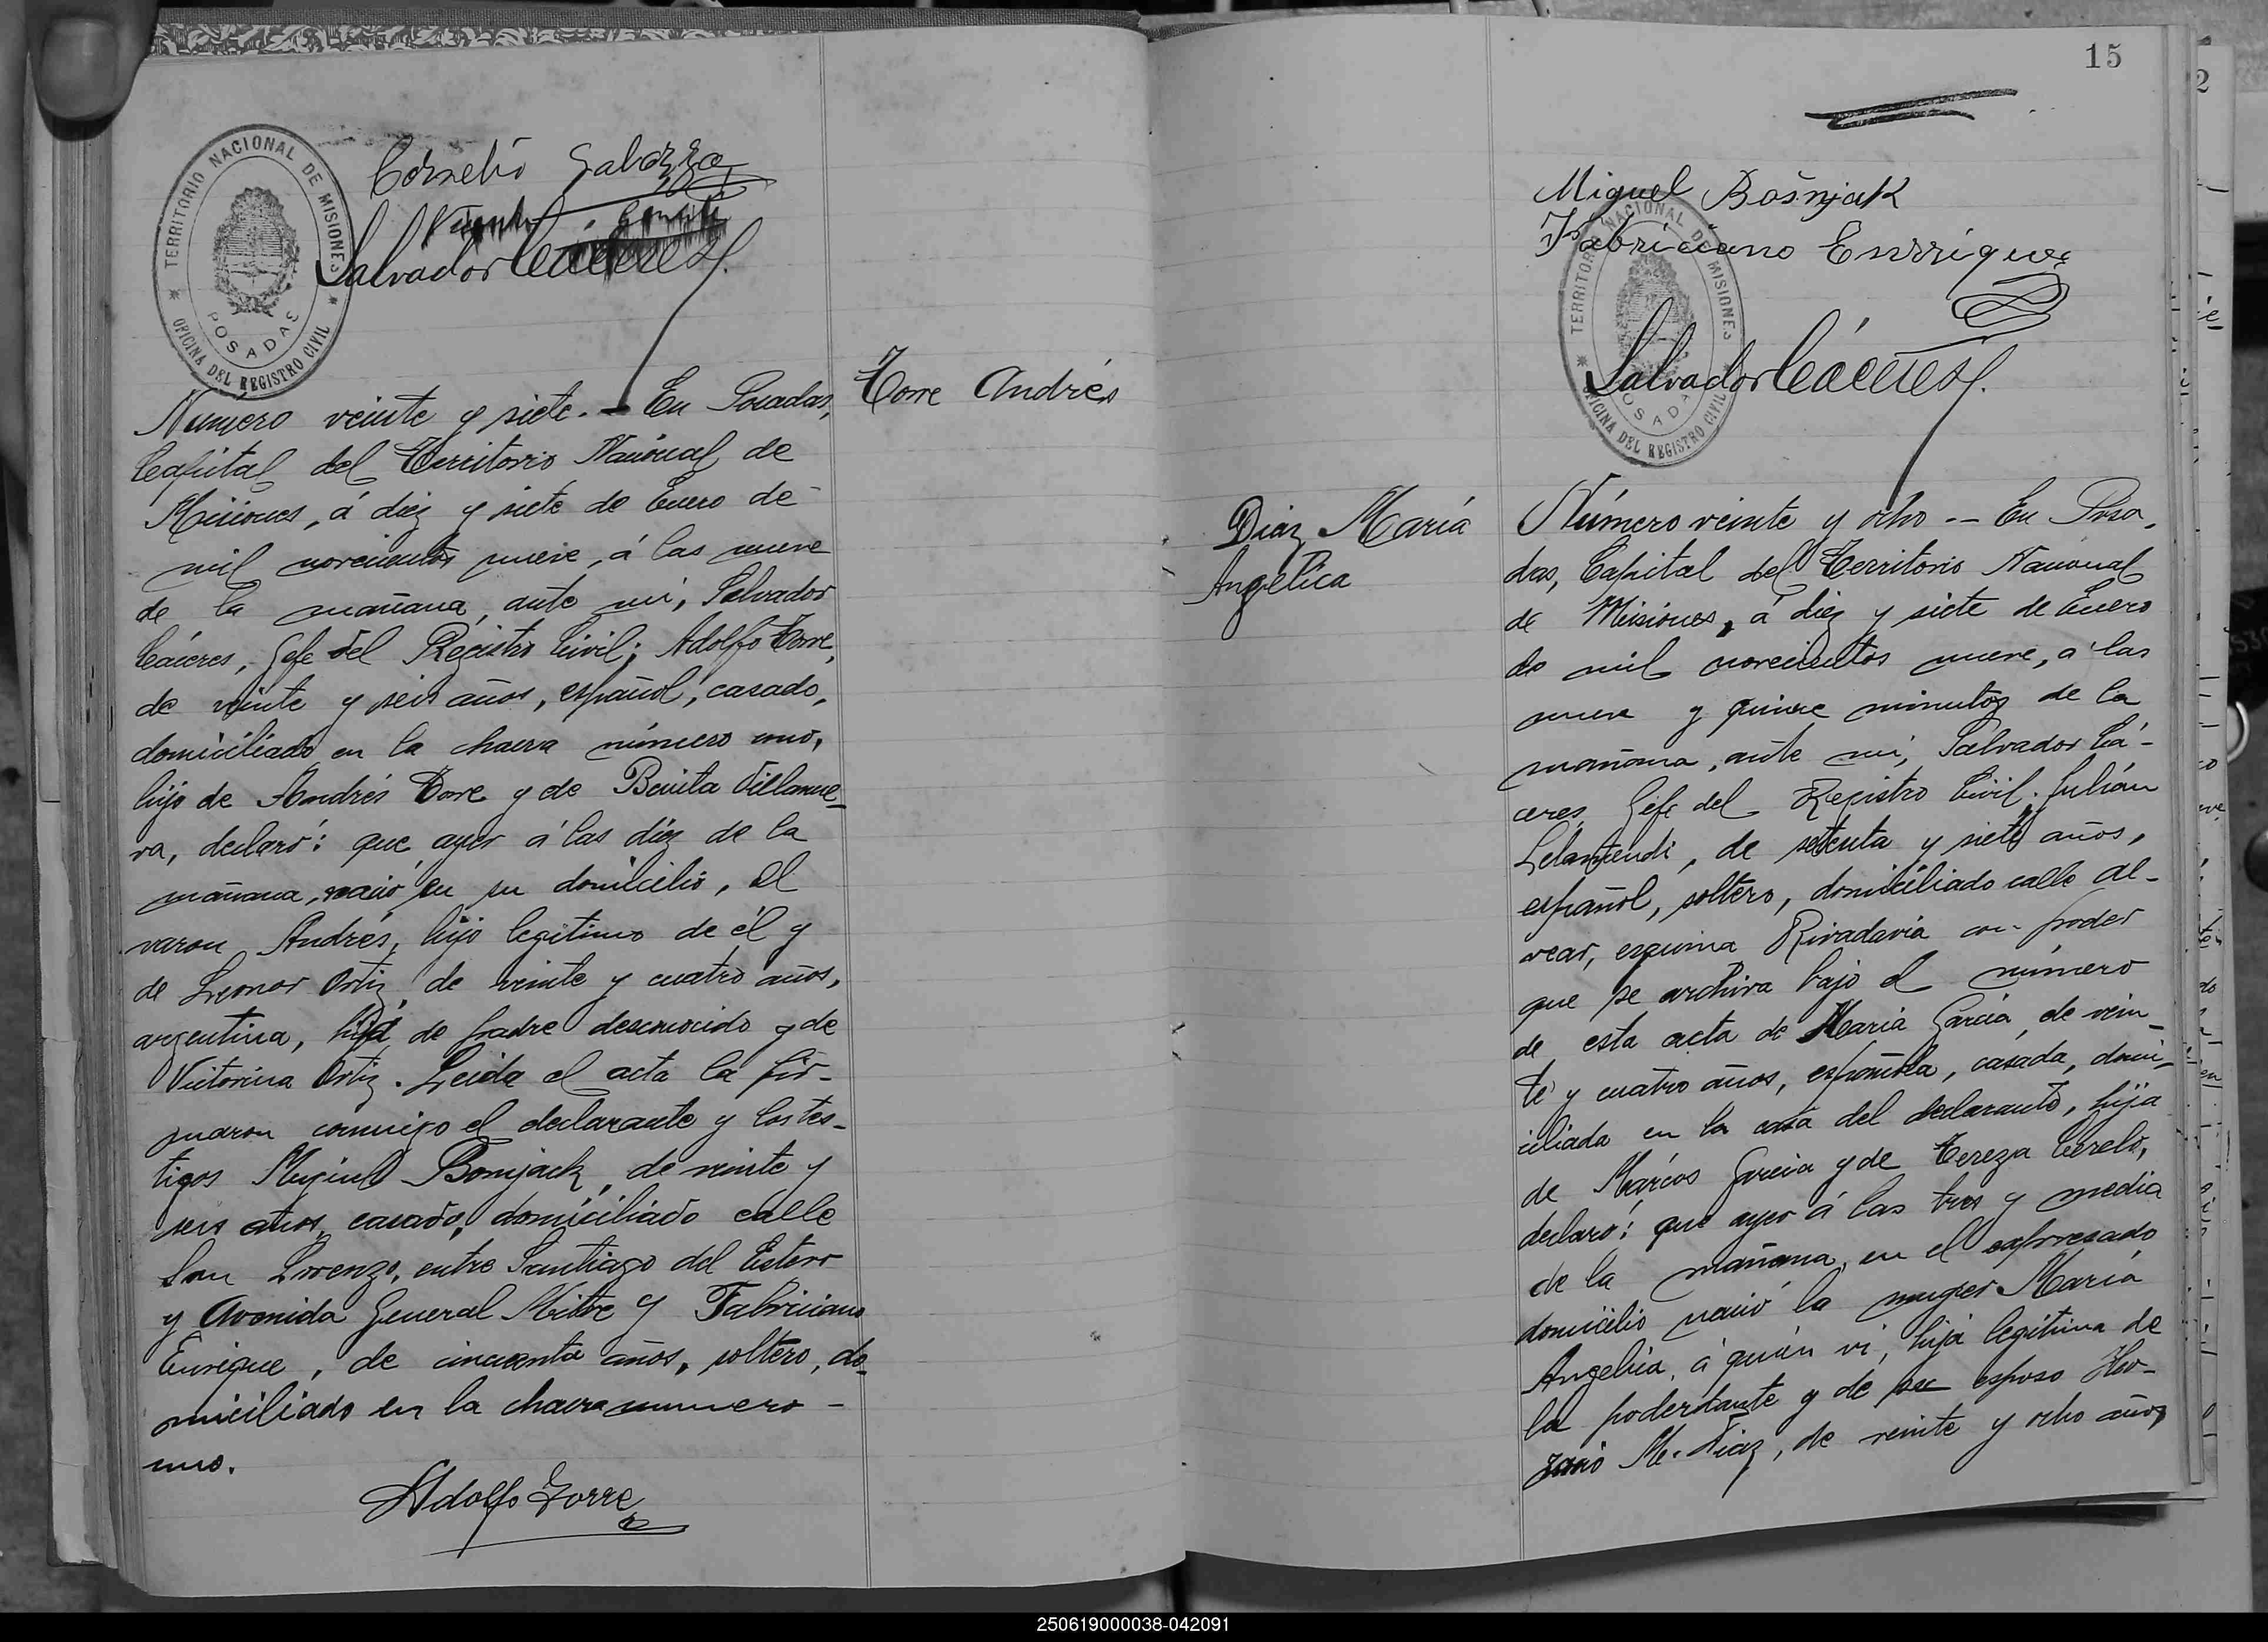 TERRITORIO NACIONAL DE MISIONES
POSADAS
OFICINA DEL REGISTRO CIVIL
Cornelio
Salvador Cáceres
Torre Andrés
Número veinte y siete. — En Posadas,
Capital del Territorio Nacional de
Misiones, á diez y siete de Enero de
mil novecientos nueve, á las nueve
de la mañana, ante mi, Salvador
Cáceres, Gefe del Registro Civil; Adolfo Torre,
de veinte y seis años, español, casado,
domiciliado en la chacra número uno,
hijo de Andrés Torre y de Benita Villanue-
va, declaró: que ayer á las diez de la
mañana, nació en su domicilio, el
varon Andrés, hijo legitimo de él y
de Leonor Ortiz, de veinte y cuatro años,
argentina, hija de padre desconocido y de
Victorina Ortiz. Leida el acta la fir-
maron conmigo el declarante y los tes-
tigos Miguel Bosnjack, de veinte y
seis años, casado, domiciliado calle
San Lorenzo, entre Santiago del Estero
y Avenida General Mitre y Fabriciano
Enrique, de cincuenta años, soltero, do-
miciliado en la chacra numero -
uno.
Adolfo Torre
15
Miguel Bošnjak
Fabriciano Enrrique
TERRITORIO NACIONAL DE MISIONES
POSADAS
OFICINA DEL REGISTRO CIVIL
Salvador Cáceres
Diaz María
Angélica
Número veinte y ocho -- En Posa-
das, Capital del Territorio Nacional
de Misiones, á diez y siete de Enero
de mil novecientos nueve, á las
nueve y quince minutos de la
mañana, ante mi, Salvador Cá-
ceres, Gefe del Registro Civil. Julián
de setenta y siete años,
español, soltero, domiciliado calle Al-
vear, esquina Rivadavia con poder
que se archiva bajo el número
de esta acta de María García, de vein-
te y cuatro años, española, casada, domi-
ciliada en la casa del declarante, hija
de Márcos García y de Tereza
declaró: que ayer á las tres y media
de la mañana, en el expresado
domicilio nació la muger María
Angelica, á quién vi, hija legitima de
la poderdante y de su esposo
M. Diaz, de veinte y ocho años,
250619000038-042091